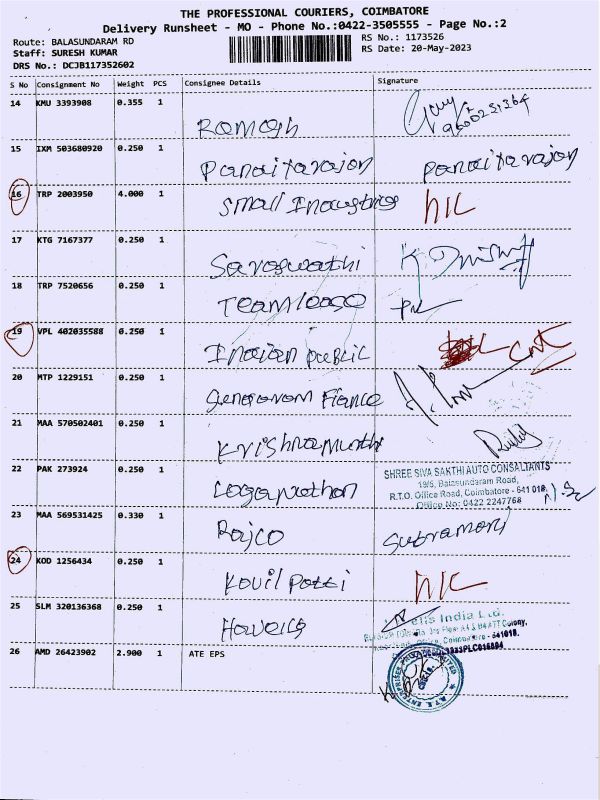 THE PROFESSIONAL COURIERS, COIMBATORE
Delivery Runsheet - MO - Phone No.:0422-3505555 - Page No.:2
Route: BALASUNDARAM RD
Staff: SURESH KUMAR
DRS No.: DCJB117352602
RS No.: 1173526
RS Date: 20-May-2023
S No Consignment No Weight PCS Consignee Details Signature
14 KMU 3393908 0.355 1
Ramesh
15 IXM 503680920 0.250 1
Panditarajan Panditarajan
16 TRP 2003950 4.000 1
Small Industries NIC
17 KTG 7167377 0.250 1
Saraswathi
18 TRP 7520656 0.250 1
Teamlease
19 VPL 402035588 0.250 1
Indian public
20 MTP 1229151 0.250 1
21 MAA 570502401 0.250 1
Krishnamurthi
22 PAK 273924 0.250 1
Loganathan
SHREE SIVA SAKTHI AUTO CONSALTANTS
19/5, Balasundaram Road,
R.T.O. Office Road, Coimbatore - 641 018.
Office No: 0422 2247768
23 MAA 569531425 0.330 1
Rajco Subramani
24 KOD 1256434 0.250 1
Kovil Patti NIC
25 SLM 320136368 0.250 1
Havells
India Ltd.
26 AMD 26423902 2.900 1 ATE EPS